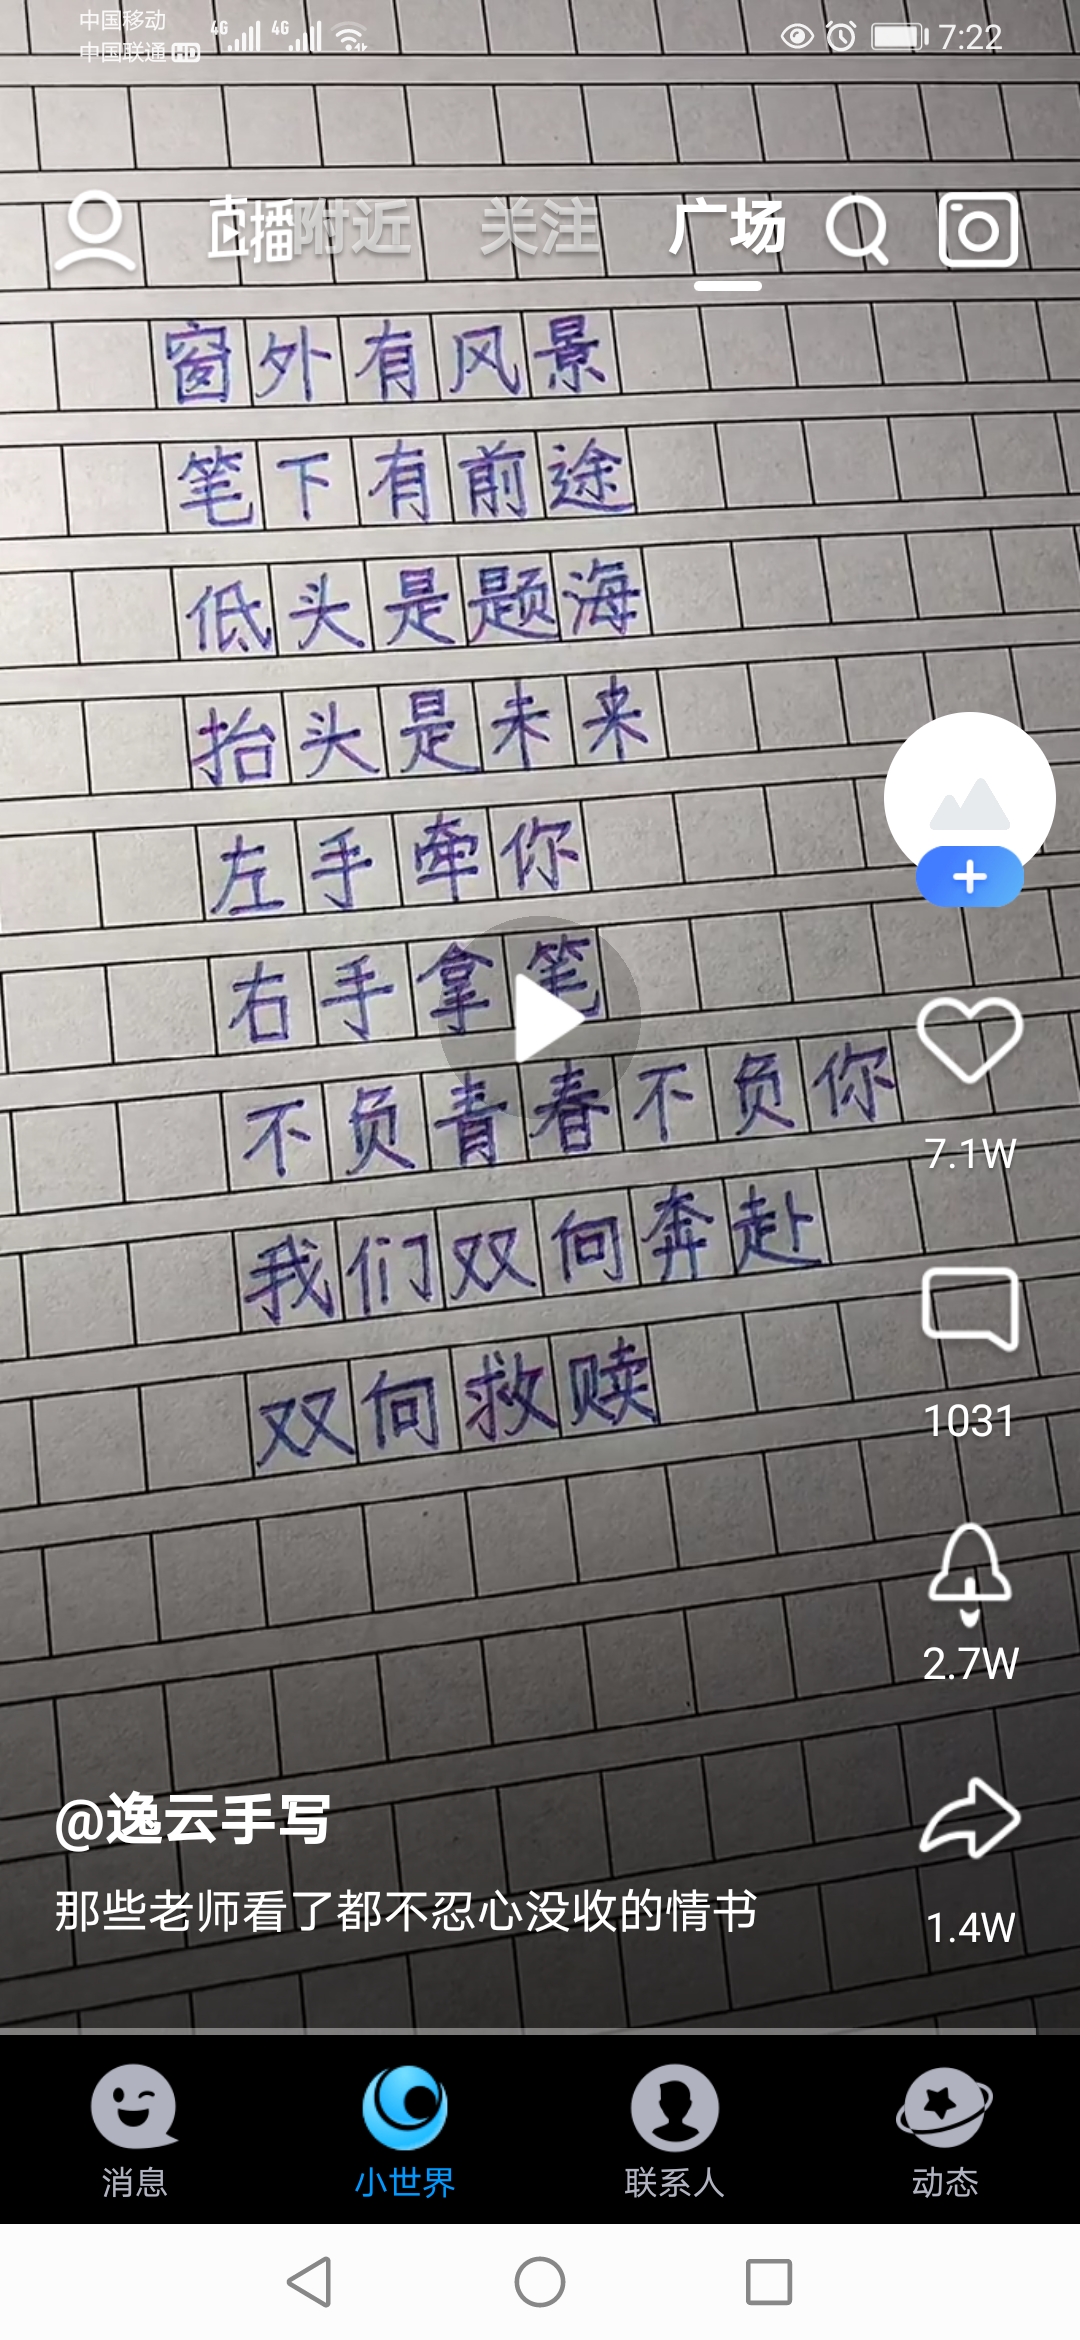 中国移动
中国联通 HD
4G 4G
7:22
直播 附近 关注 广场
窗外有风景
笔下有前途
低头是题海
抬头是未来
左手牵你
右手拿笔
不负青春不负你
我们双向奔赴
双向救赎
7.1W
1031
2.7W
1.4W
@逸云手写
那些老师看了都不忍心没收的情书
消息 小世界 联系人 动态